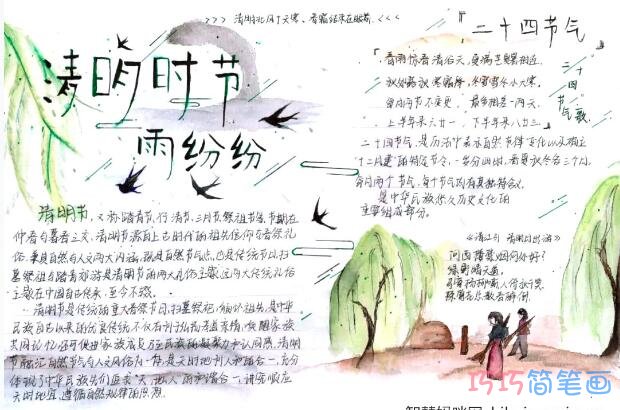 清明时节
雨纷纷
清明节，又称踏青节、行清节、三月节、祭祖节等，节期在
仲春与暮春之交。清明节源自上古时代的祖先信仰与春祭礼
俗，兼具自然与人文两大内涵，既是自然节气点，也是传统节日。扫
墓祭祖与踏青郊游是清明节的两大礼俗主题，这两大传统礼俗
主题在中国自古传承，至今不辍。
清明节是传统的重大春祭节日，扫墓祭祀、缅怀祖先，是中华
民族自古以来的优良传统，不仅有利于弘扬孝道亲情、唤醒家族
共同记忆，还可促进家族成员乃至民族的凝聚力和认同感。清明
节融汇自然节气与人文风俗为一体，是天时地利人和的合一，充分
体现了中华民族先祖们追求“天、地、人”的和谐合一，讲究顺应
天时地宜、遵循自然规律的思想。
二十四节气
二十四节气歌
春雨惊春清谷天，夏满芒夏暑相连。
秋处露秋寒霜降，冬雪雪冬小大寒。
每月两节不变更，最多相差一两天。
上半年来六廿一，下半年来八廿三。
二十四节气，是历法中表示自然节律变化以及确立
“十二月建”的特定节令。一岁四时，春夏秋冬各三个月，
每月两个节气，每个节气均有其独特含义。
是中华民族悠久历史文化的
重要组成部分。
阿西蒲薹烟何外好？
绿野晴天道。
巧巧简笔画